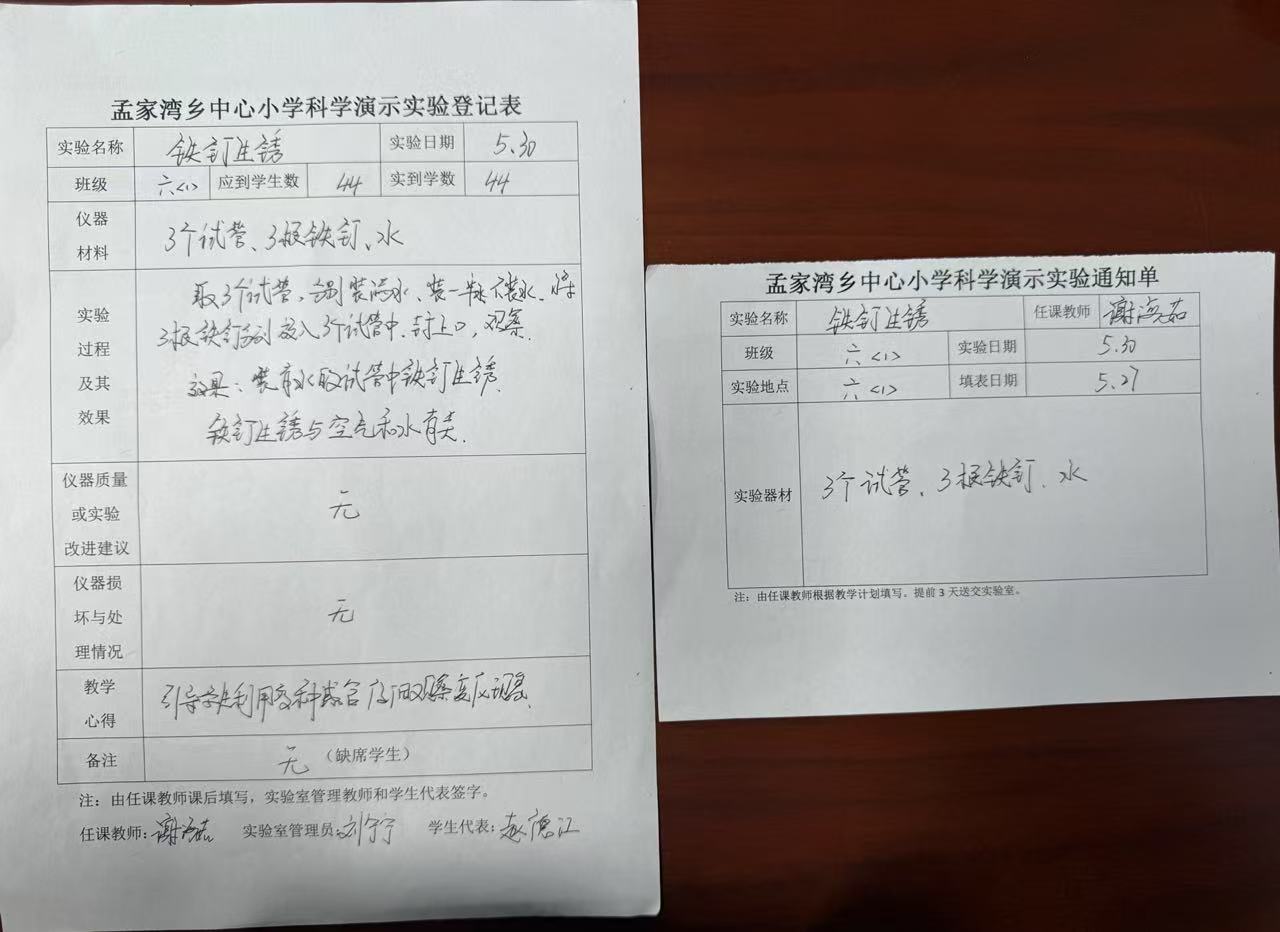 孟家湾乡中心小学科学演示实验登记表
实验名称 铁钉生锈 实验日期 5.30
班级 六<1> 应到学生数 44 实到学数 44
仪器
材料
3个试管、3根铁钉、水
实验
过程
及其
效果
取3个试管,分别装满水、装一半水、不装水,将
3根铁钉分别放入3个试管中,封上口,观察.
效果:装有水的试管中铁钉生锈.
铁钉生锈与空气和水有关.
仪器质量
或实验
改进建议
无
仪器损
坏与处
理情况
无
教学
心得
引导学生利用多种感官
观察
现象.
备注 无 (缺席学生)
注:由任课教师课后填写,实验室管理教师和学生代表签字。
任课教师: 实验室管理员: 刘宁宁 学生代表: 赵德江
孟家湾乡中心小学科学演示实验通知单
实验名称 铁钉生锈 任课教师
班级 六<1> 实验日期 5.30
实验地点 六<1> 填表日期 5.27
实验器材 3个试管、3根铁钉、水
注:由任课教师根据教学计划填写。提前3天送交实验室。